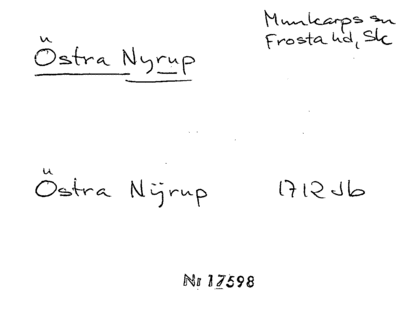 Munkarps sn
Frosta hd, Sk
Östra Nyrup
Östra Nÿrup 1712 Jb
Nr 17598